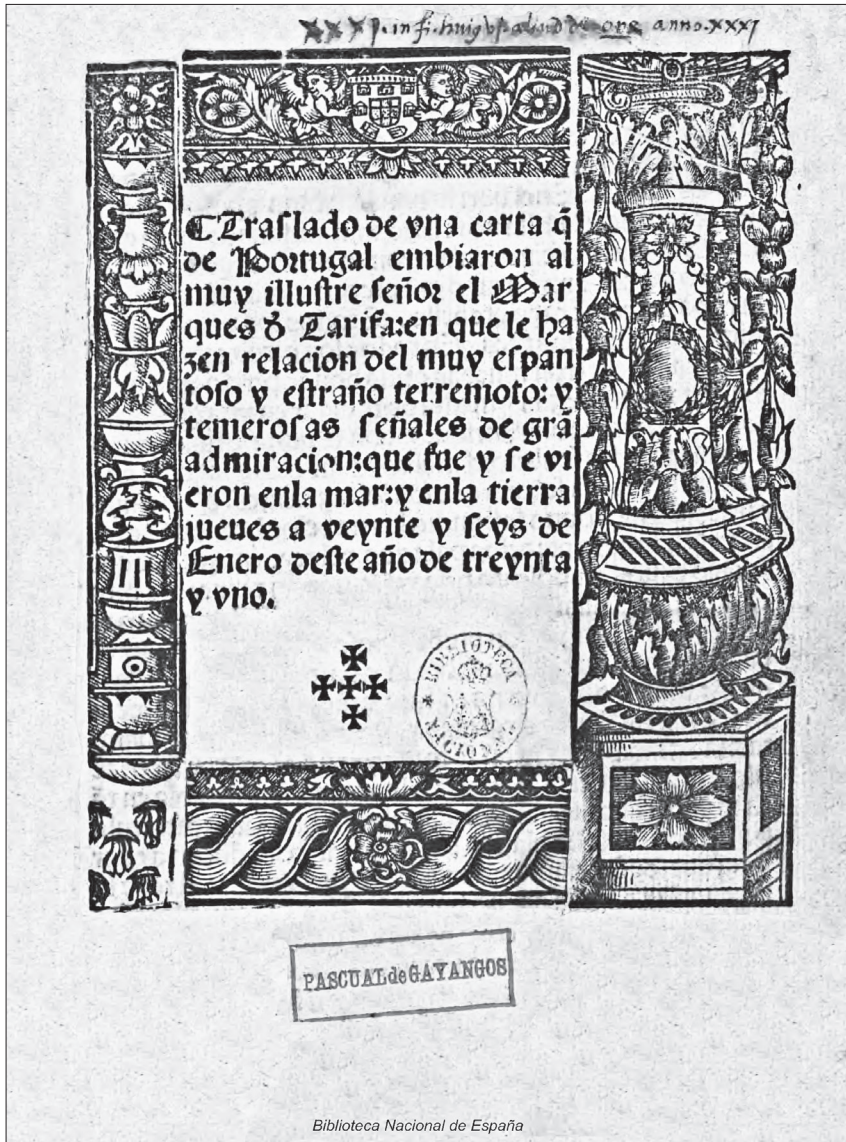 anno. xxxj
¶ Traſlado de vna carta q̃
de Portugal embiaron al
muy illuſtre ſeñor el Mar
ques d̉ Tarifa:en que le ha
zen relacion del muy eſpan
toſo y eſtraño terremoto: y
temeroſas ſeñales de grã
admiracion:que fue y ſe vi
eron enla mar:y enla tierra
jueues a veynte y ſeys de
Enero deſte año de treynta
y vno.
BIBLIOTECA NACIONAL
PASCUAL de GAYANGOS
Biblioteca Nacional de España